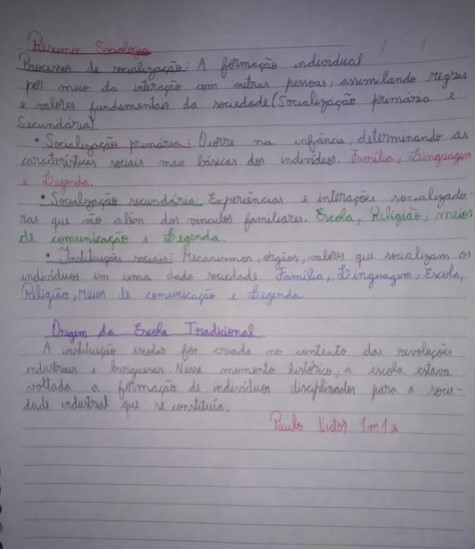 Resumo Sociologia
Processos de socialização: A formação individual
por meio da interação com outras pessoas, assimilando regras
e valores fundamentais da sociedade (Socialização primária e
Secundária)
• Socialização primária: Ocorre na infância, determinando as
características sociais mais básicas dos indivíduos. Família, Linguagem
e Legenda.
• Socialização secundária: Experiências e interações socializado-
ras que vão além dos vínculos familiares. Escola, Religião, meios
de comunicação e Legenda.
• Instituições sociais: Mecanismos, órgãos, valores que socializam os
indivíduos em uma dada sociedade. Família, Linguagem, Escola,
Religião, Meios de comunicação e Legenda
Origem da Escola Tradicional
A instituição escolar foi criada no contexto das revoluções
industriais e burguesas. Nesse momento histórico, a escola estava
voltada a formação de indivíduos disciplinados para a socie-
dade industrial que se constituía.
Paulo Victor 1m1a